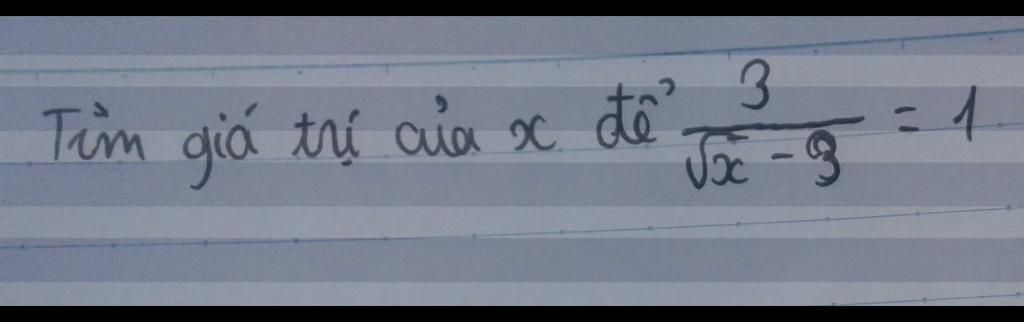 Tìm giá trị của x để 3/(√x - 3) = 1